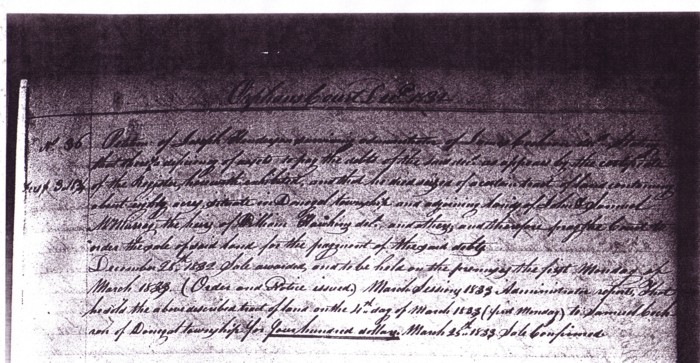 Orphans Court Decr 1832
No. 36 Petition of Joseph Henderson surviving administrator of decd. Stating
that there is a deficiency of assets to pay the debts of the said decd. as appears by the certificate
of the Register, herewith exhibited, and that he died seized of a certain tract of land containing
about eighty acres, situate in Donegal township and adjoining lands of John & Samuel
McMurray, the heirs of William decd. and others, and therefore prays the Court to
order the sale of said land for the payment of the said debts
December 28th 1832 Sale awarded, and to be held on the premises the first Monday of
March 1833 (Order and Notice issued) March Sessions 1833 Administrator reports, That
he sold the above described tract of land on the 4th day of March 1833 (first Monday) to Samuel Coch
ran of Donegal township for four hundred dollars. March 25th 1833 Sale Confirmed